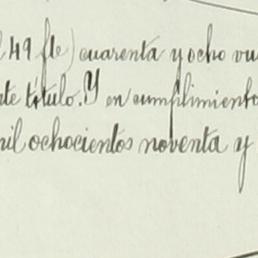 49 fte) cuarenta y ocho vu
te título. Y en cumplimiento
mil ochocientos noventa y